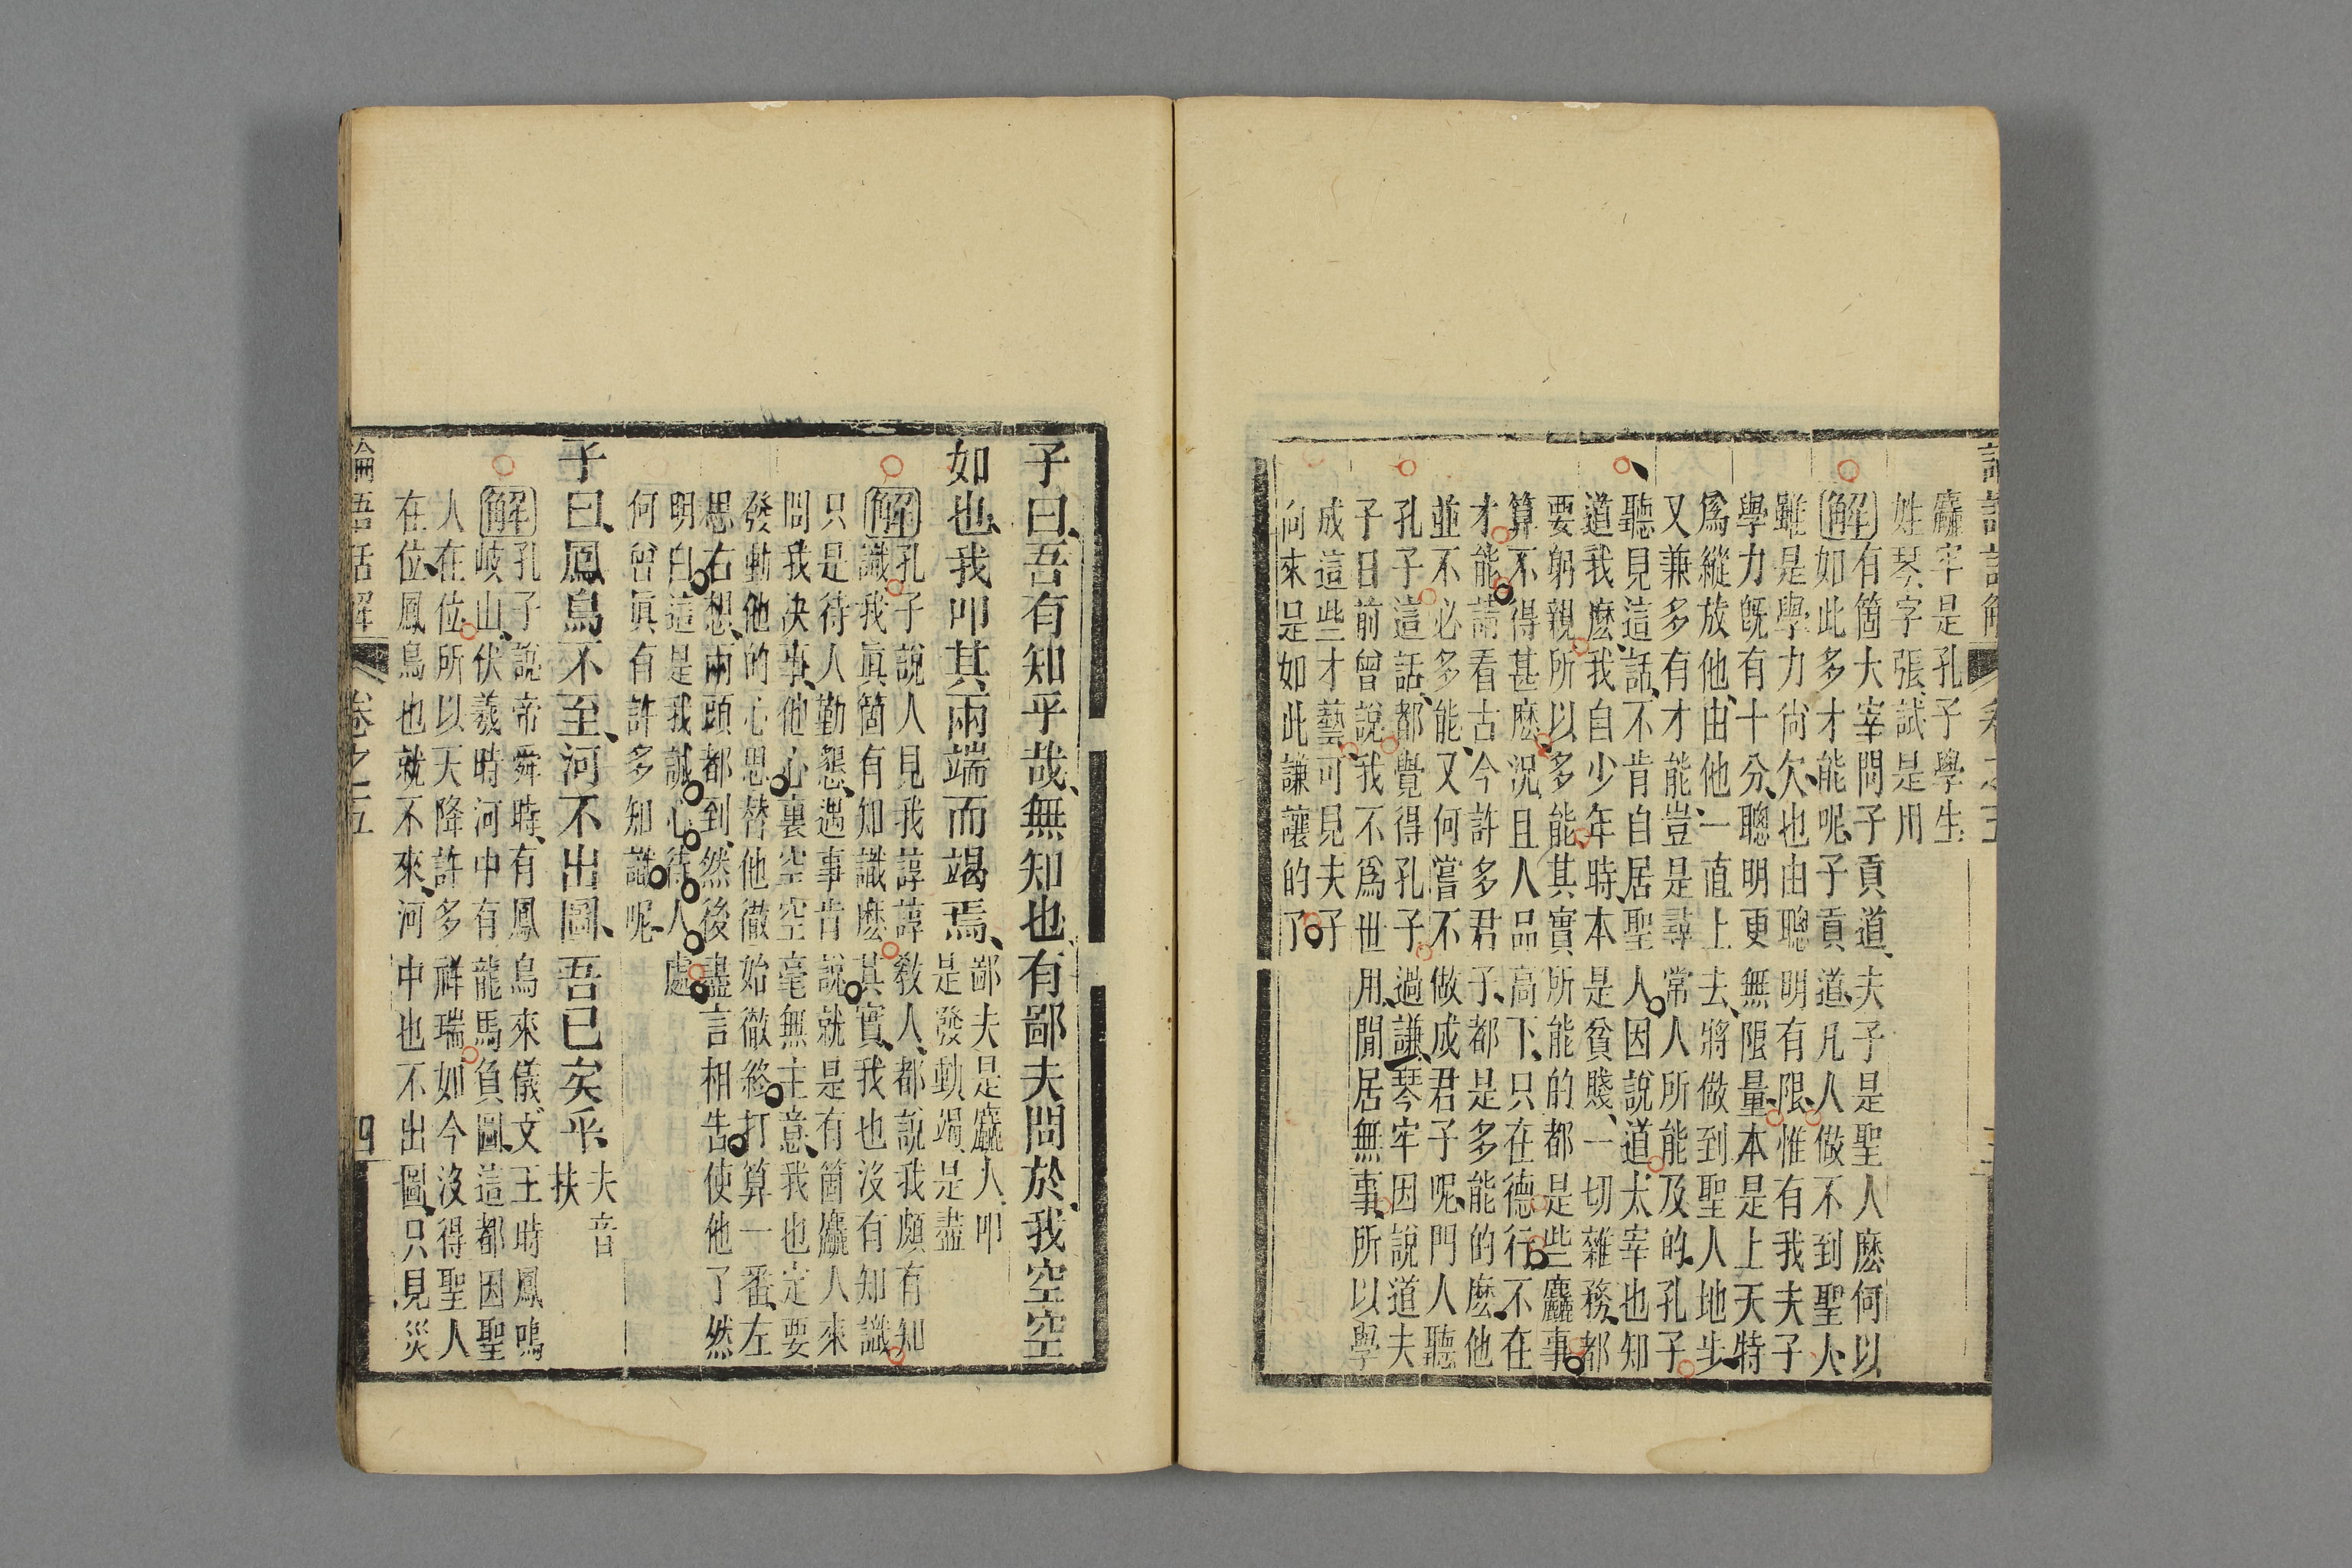 麤牢是孔子學生
姓琴字張試是用
解有箇大宰問子貢道夫子是聖人麽何以
如此多才能呢子貢道凡人做不到聖人
雖是學力尙欠也由聰明有限惟有我夫子
學力旣有十分聰明更無限量本是上天特
爲縱放他由他一直上去將做到聖人地步
又兼多有才能豈是尋常人所能及的孔子
聽見這話不肯自居聖人因說道太宰也知
道我麽我自少年時本是貧賤一切雜務都
要躬親所以多能其實所能的都是些麤事
算不得甚麽況且人品高下只在德行不在
才能請看古今許多君子都是多能的麽他
並不必多能又何嘗不做成君子呢門人聽
孔子這話都覺得孔子過謙琴牢因說道夫
子日前曾說我不爲世用閒居無事所以學
成這些才藝可見夫子
向來是如此謙讓的了
子曰吾有知乎哉無知也有鄙夫問於我空空
如也我叩其兩端而竭焉鄙夫是麤人叩
是發動竭是盡
解孔子說人見我諄諄敎人都說我頗有知
識我眞箇有知識麽其實我也沒有知識
只是待人勤懇遇事肯說就是有箇麤人來
問我決事他心裏空空毫無主意我也定要
發動他的心思替他徹始徹終打算一番左
思右想兩頭都到然後盡言相吿使他了然
明白這是我誠心待人處
何曾眞有許多知識呢
子曰鳳鳥不至河不出圖吾已矣乎夫音
扶
解孔子說帝舜時有鳳鳥來儀文王時鳳鳴
岐山伏羲時河中有龍馬負圖這都因聖
人在位所以天降許多祥瑞如今沒得聖人
在位鳳鳥也就不來河中也不出圖只見災
論語話解 卷之五 四